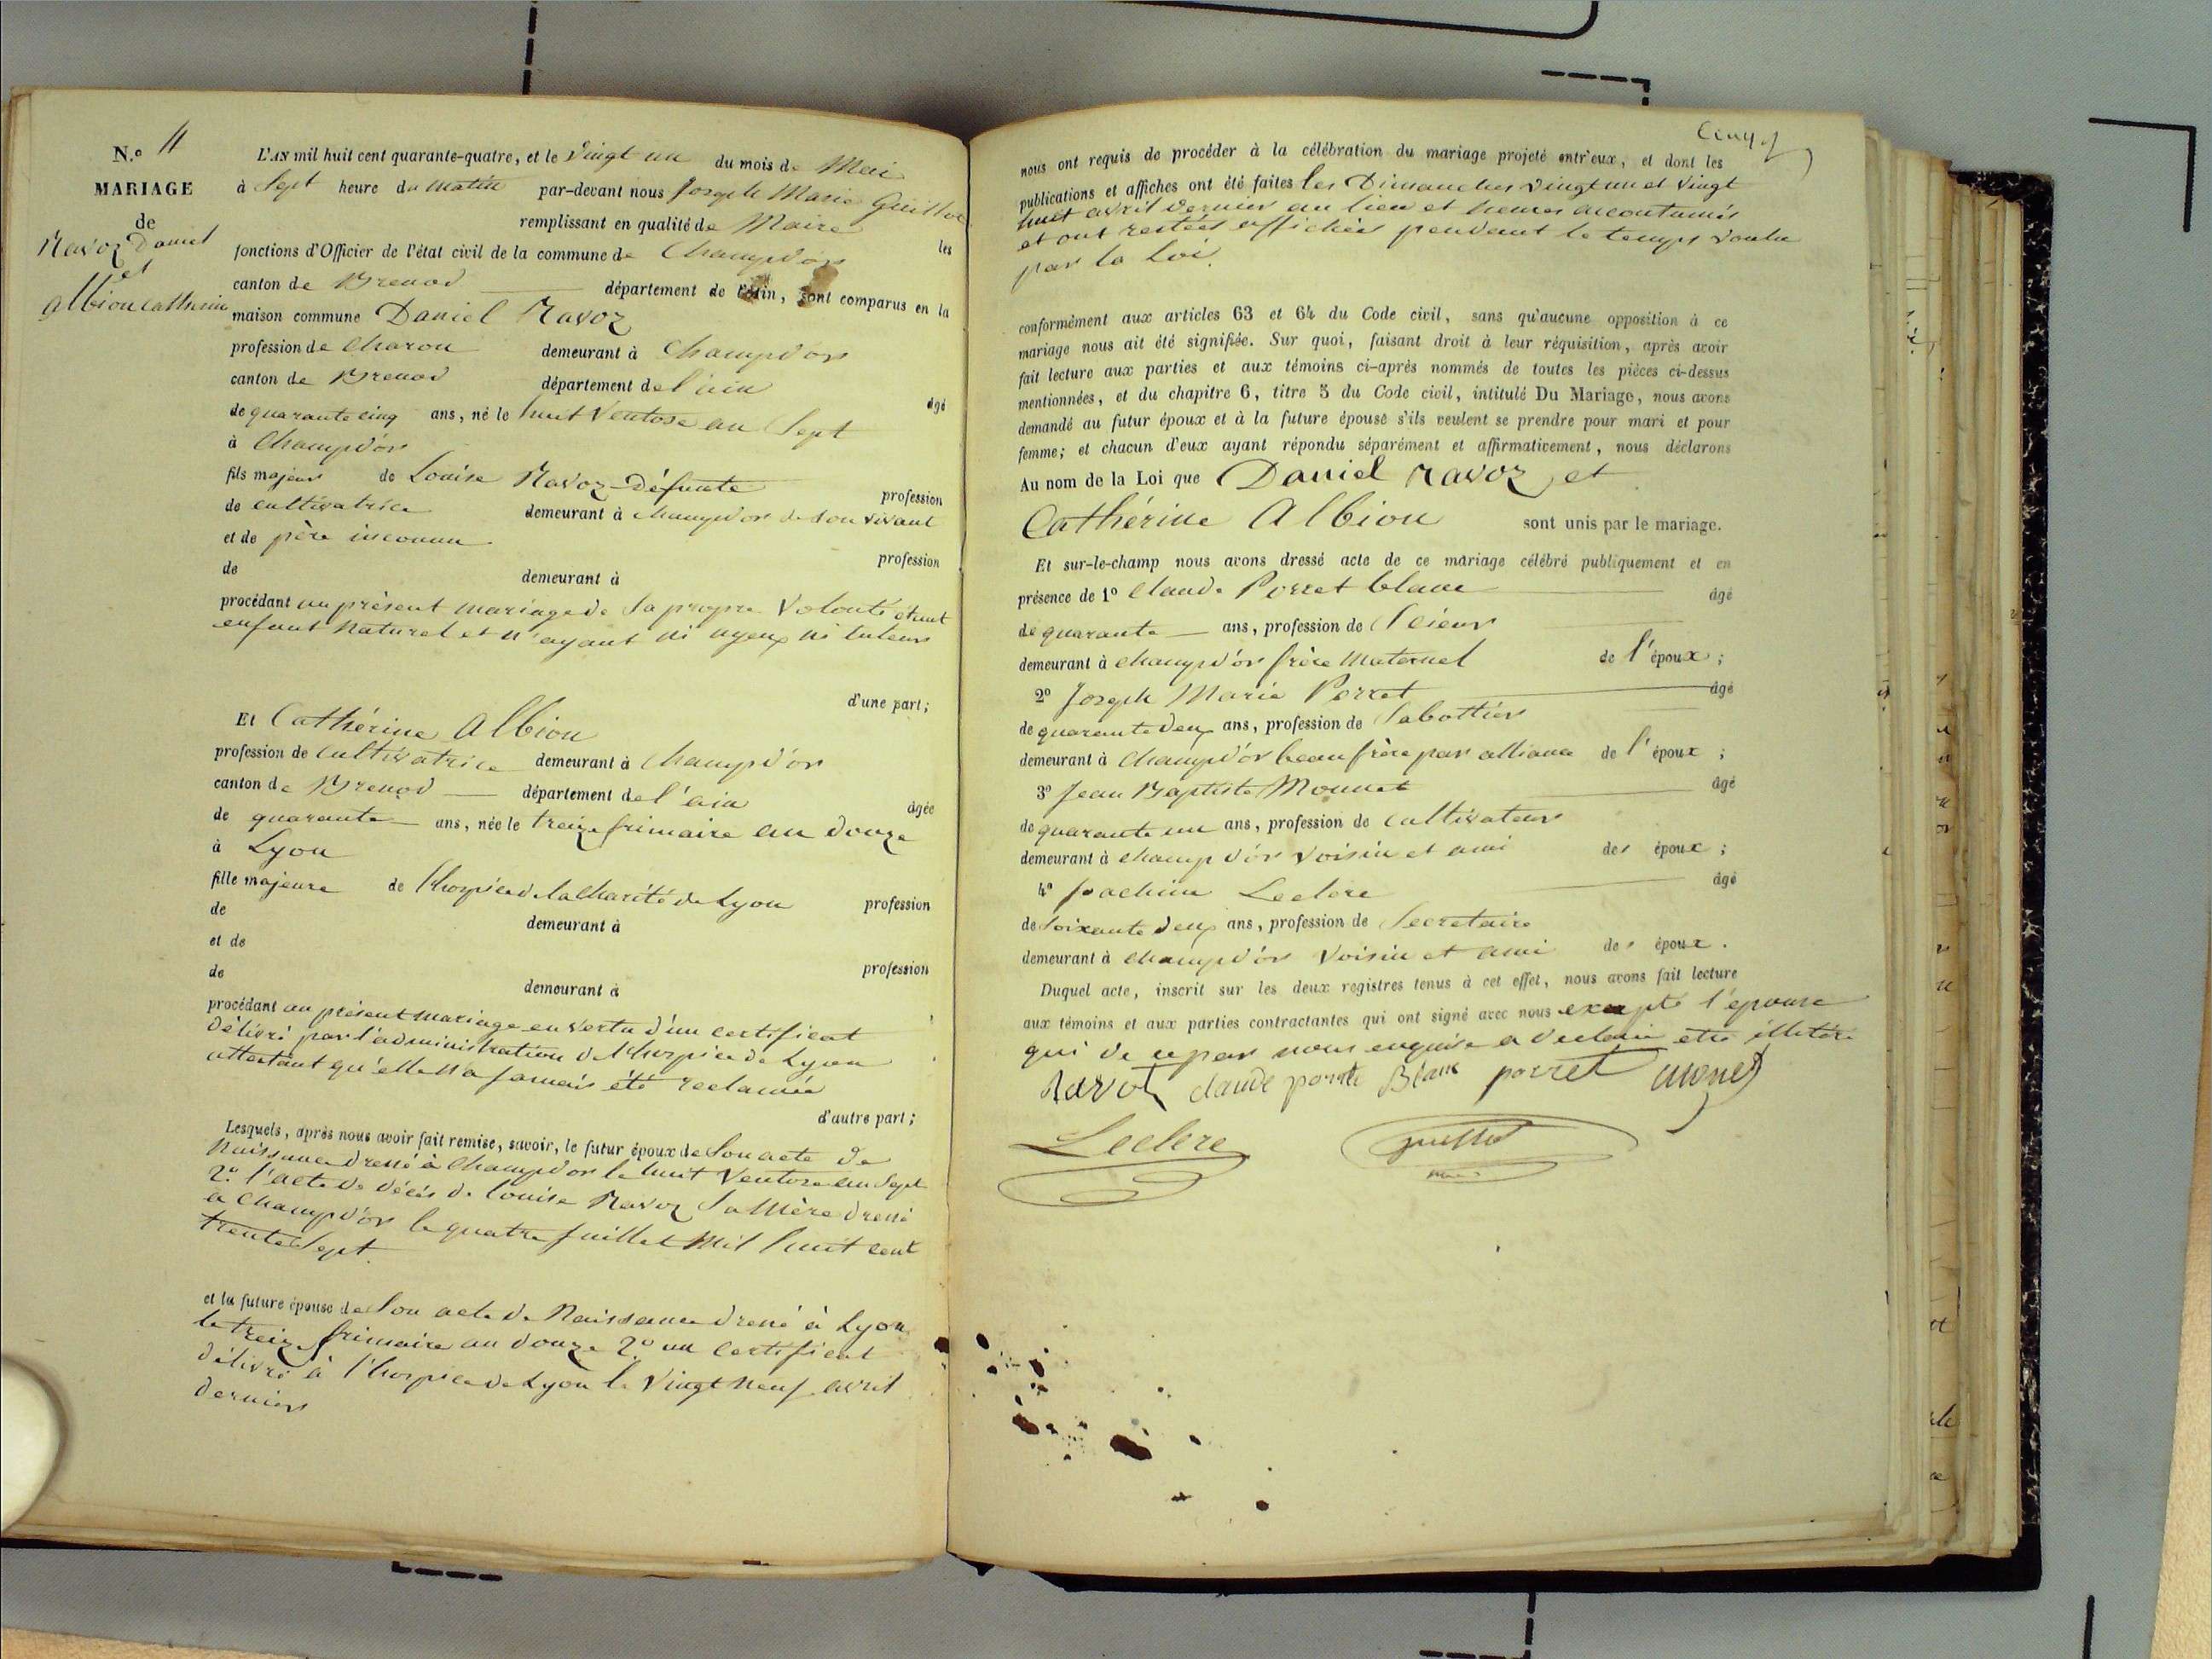 N.o 11
MARIAGE
de
Ravoz Daniel
et
albion catherine
L'AN mil huit cent quarante-quatre, et le vingt un du mois de Mai
à Sept heure du matin par-devant nous Joseph Marie Guillot
remplissant en qualité de Maire les
fonctions d'Officier de l'état civil de la commune de Champd'or
canton de Brenod département de l'Ain, sont comparus en la
maison commune Daniel Ravoz
profession de charon demeurant à Champd'or
canton de Brenod département de l'ain âgé
de quarante cinq ans, né le huit Ventose an Sept
à Champd'or
fils majeur de Louise Ravoz Défunte profession
de cultivatrice demeurant à champd'or de son vivant
et de père inconnu profession
de demeurant à
procédant au présent mariage de sa propre Volonté étant
enfant naturel et n'ayant ni ayeux ni tuteurs
d'une part;
Et Cathérine Albion
profession de cultivatrice demeurant à Champd'or
canton de Brenod département de l'ain âgée
de quarante ans, née le treize frimaire an douze
à Lyon
fille majeure de l'hospice de la charité de Lyon profession
de demeurant à
et de profession
de demeurant à
procédant au présent mariage en vertu d'un certificat
délivré par l'administration de l'hospice de Lyon
attestant qu'elle n'a jamais été reclamée
d'autre part;
Lesquels, après nous avoir fait remise, savoir, le futur époux de Son acte de
Naissance dressé à Champdor le huit Ventose an Sept
2.o l'acte de décés de Louise Ravoz Sa Mère dressé
à Champd'or le quatre juillet Mil huit cent
trente Sept.
et la future épouse de Son acte de Naissance dressé à Lyon
le treize frimaire an douze 2.o un certificat
délivré à l'hospice de Lyon le Vingt neuf avril
dernier
nous ont requis de procéder à la célébration du mariage projeté entr'eux, et dont les
publications et affiches ont été faites les Dimanches vingt un et vingt
huit avril dernier au lieu et heures accoutumés
et ont restées affichées pendant le temps voulu
par la Loi.
conformément aux articles 63 et 64 du Code civil, sans qu'aucune opposition à ce
mariage nous ait été signifiée. Sur quoi, faisant droit à leur réquisition, après avoir
fait lecture aux parties et aux témoins ci-après nommés de toutes les pièces ci-dessus
mentionnées, et du chapitre 6, titre 5 du Code civil, intitulé Du Mariage, nous avons
demandé au futur époux et à la future épouse s'ils veulent se prendre pour mari et pour
femme; et chacun d'eux ayant répondu séparément et affirmativement, nous déclarons
Au nom de la Loi que Daniel Ravoz et
Cathérine Albion sont unis par le mariage.
Et sur-le-champ nous avons dressé acte de ce mariage célébré publiquement et en
présence de 1o Claude Porret blanc âgé
de quarante ans, profession de Scieur
demeurant à champd'or frère maternel de l'époux;
2o Joseph Marie Perret âgé
de quarante deux ans, profession de Sabottier
demeurant à Champd'or beau frère par alliance de l'époux;
3o Jean Baptiste Monnet âgé
de quarante un ans, profession de cultivateur
demeurant à champ d'or voisin et ami des époux;
4o Joachim Leclere âgé
de Soixante deux ans, profession de Secretaire
demeurant à champd'or Voisin et ami des époux.
Duquel acte, inscrit sur les deux registres tenus à cet effet, nous avons fait lecture
aux témoins et aux parties contractantes qui ont signé avec nous excepté l'epouse
qui de ce par nous enquise a declaré etre illitéré
Ravoz claude porret Blanc porret monet
Leclere